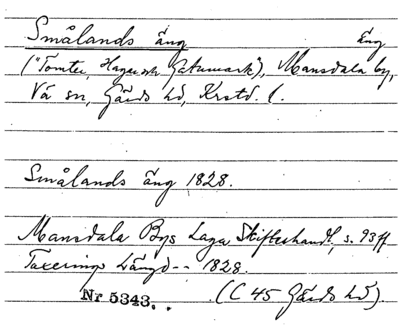 Smålands äng äng
("Tomter, Hagar och Gatumark"), Mansdala by,
Vä sn, Gärds hd, Krstd. l.
Smålands äng 1828.
Mansdala Bys Laga Skifteshandl., s. 93 ff
Taxerings Längd -- 1828.
Nr 5343. (C 45 Gärds hd).